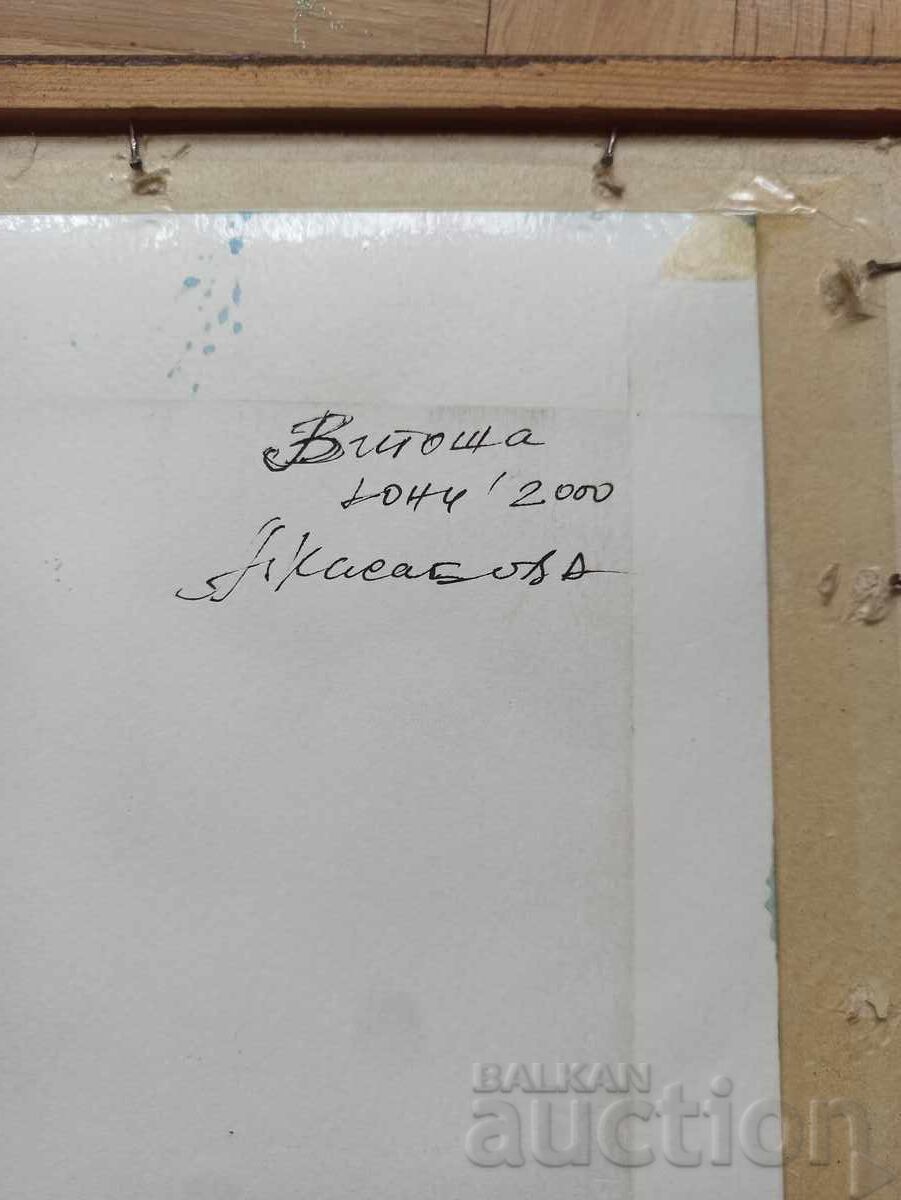 Витоша
юни '2000
А Касабова
BALKAN
auction